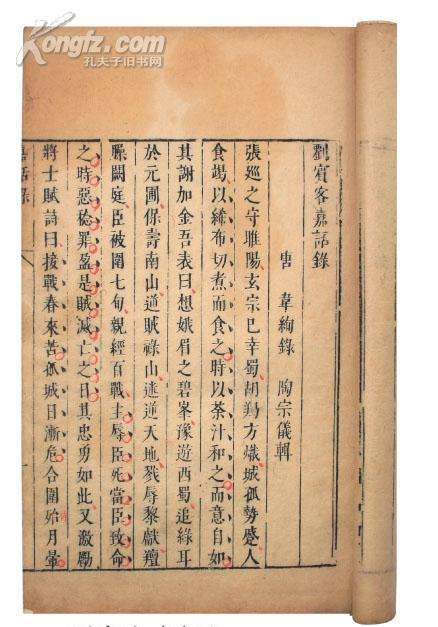 Kongfz.com
孔夫子旧书网
劉賓客嘉話錄
唐 韋絢錄 陶宗儀輯
張巡之守睢陽玄宗已幸蜀胡羯方熾城孤勢蹙人
食竭以紙布切煮而食之時以茶汁和之而意自如
其謝加金吾表曰想娥眉之碧峯豫遊西蜀追綠耳
於元圃保壽南山逆賊祿山迷逆天地戮辱黎獻羶
臊闕庭臣被圍七旬親經百戰主辱臣死當臣致命
之時惡稔罪盈是賊滅亡之日其忠勇如此又激勵
將士賦詩曰接戰春來苦孤城日漸危合圍殆月暈